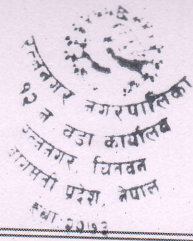 रत्ननगर नगरपालिका
१२ नं वडा कार्यालय
रत्ननगर, चितवन
बागमती प्रदेश, नेपाल
२०७३